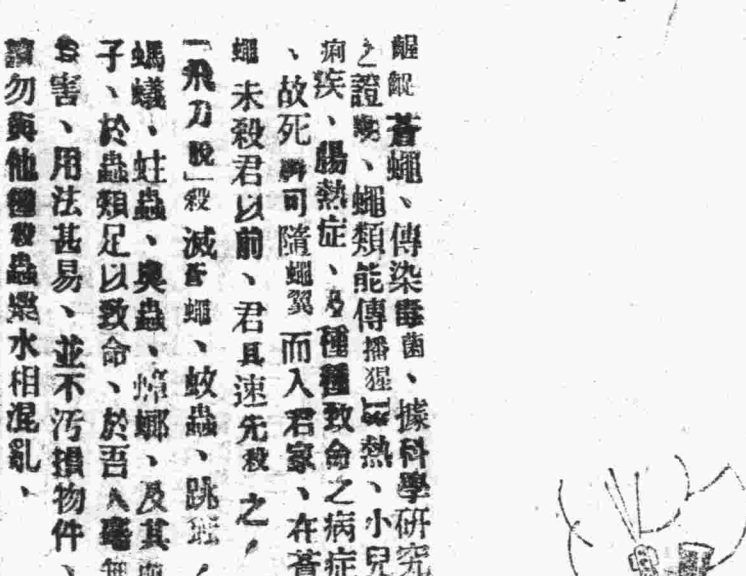 齷齪蒼蠅、傳染毒菌、據科學研究
之證明、蠅類能傳播猩紅熱、小兒
痢疾、腸熱症、及種種致命之病症
、故死神可隨蠅翼而入君家、在蒼
蠅未殺君以前、君其速先殺之、
「飛刀脫」殺滅蒼蠅、蚊蟲、跳蚤、
螞蟻、蛀蟲、臭蟲、蟑螂、及其
子、於蟲類足以致命、於吾人毫無
害、用法甚易、並不汚損物件、
請勿與他種殺蟲藥水相混亂、